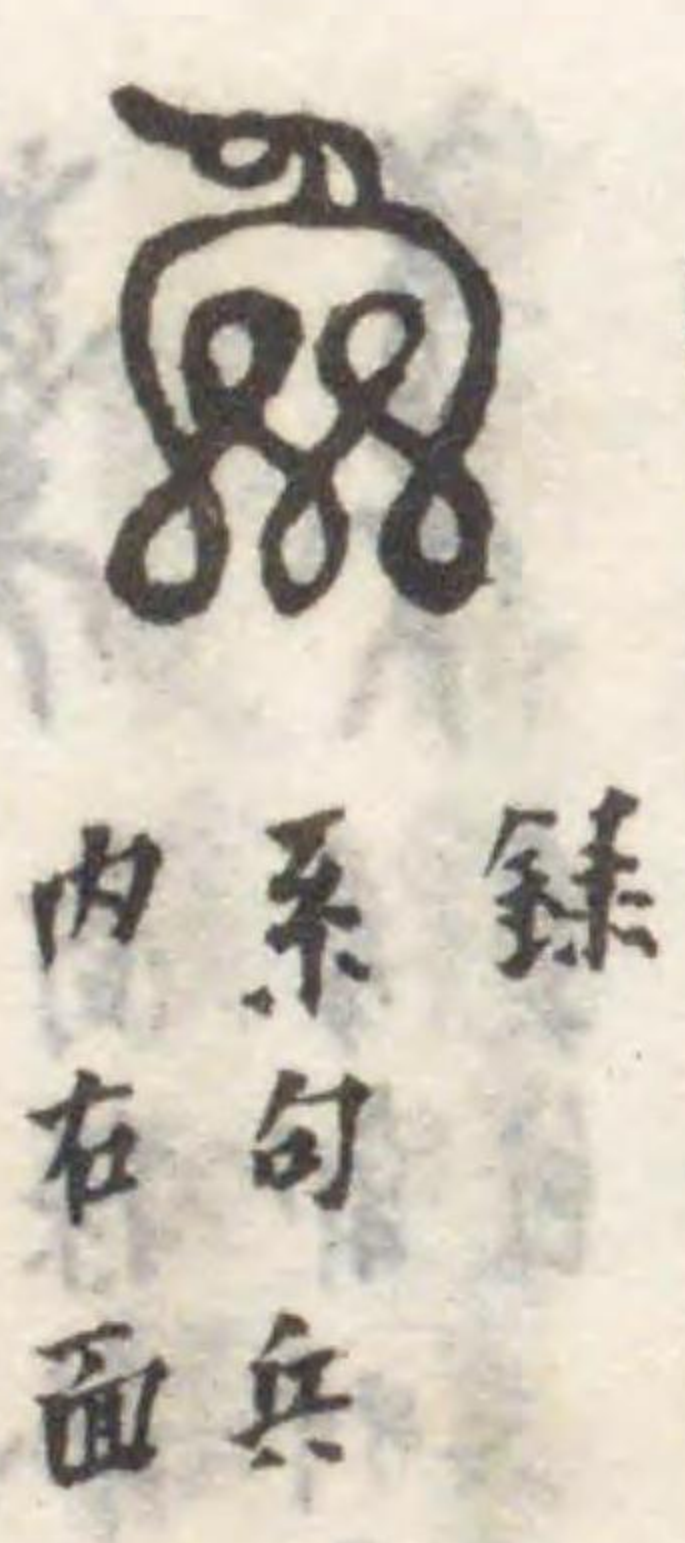 系句兵
内右面